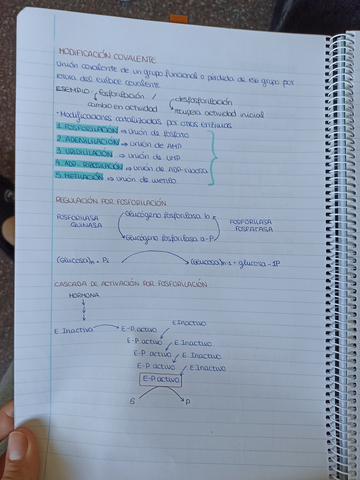 MODIFICACIÓN COVALENTE
Unión covalente de un grupo funcional o pérdida de ese grupo por
rotura del enlace covalente
EJEMPLO: fosforilación / desfosforilación
cambio en actividad recupera actividad inicial
· Modificaciones catalizadas por otras enzimas
1. FOSFORILACIÓN → unión de fosfato
2. ADENILILACIÓN → unión de AMP
3. URIDILILACIÓN → unión de UMP
4. ADP-RIBOSILACIÓN → unión de ADP-ribosa
5. METILACIÓN → unión de metilo
REGULACIÓN POR FOSFORILACIÓN
Glucógeno fosforilasa b
FOSFORILASA QUINASA
FOSFORILASA FOSFATASA
Glucógeno fosforilasa a-P
(Glucosa)n + Pi (Glucosa)n-1 + glucosa-1P
CASCADA DE ACTIVACIÓN POR FOSFORILACIÓN
HORMONA
E. Inactivo E-P. activo E Inactivo
E-P. activo E. Inactivo
E-P. activo E. Inactivo
E-P. activo E. Inactivo
E-P. activo
S P